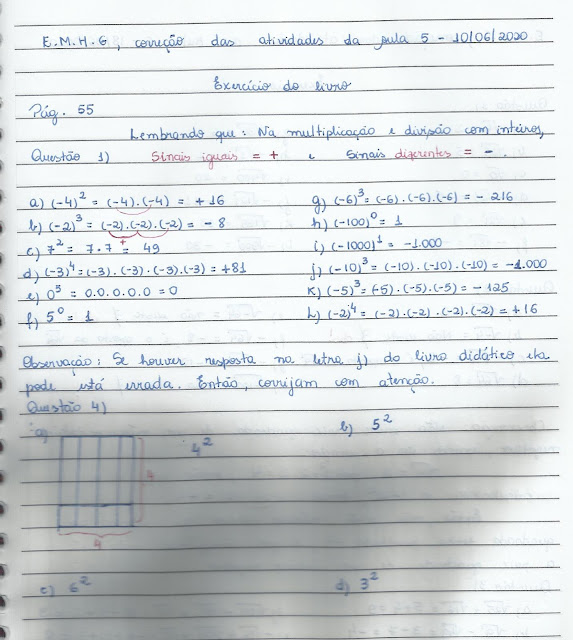 E.M.H.G, correção das atividades da aula 5 - 10/06/2020
Exercício do livro
Pág. 55
Lembrando que: Na multiplicação e divisão com inteiros,
Questão 1) Sinais iguais = + e Sinais diferentes = - .
a) (-4)² = (-4).(-4) = +16
g) (-6)³ = (-6).(-6).(-6) = - 216
b) (-2)³ = (-2).(-2).(-2) = - 8
+
h) (-100)⁰ = 1
c) 7² = 7.7 = 49
i) (-1000)¹ = -1.000
d) (-3)⁴ = (-3).(-3).(-3).(-3) = +81
j) (-10)³ = (-10).(-10).(-10) = -1.000
e) 0⁵ = 0.0.0.0.0 = 0
K) (-5)³ = (-5).(-5).(-5) = - 125
f) 5⁰ = 1
L) (-2)⁴ = (-2).(-2).(-2).(-2) = +16
Observação: Se houver resposta na letra j) do livro didático ela
pode está errada. Então, corrijam com atenção.
Questão 4)
a)
4²
b) 5²
4
4
c) 6²
d) 3²